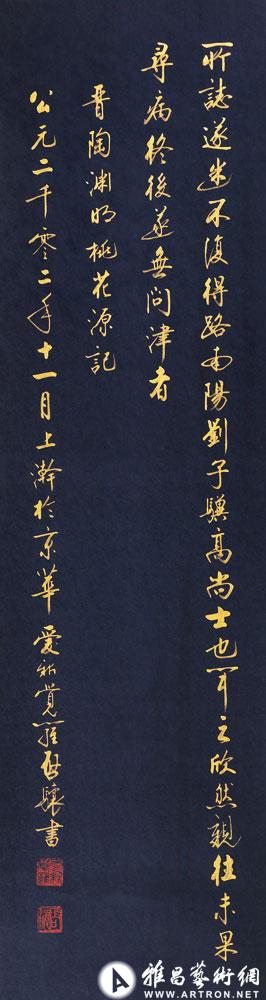 所誌遂迷不復得路南陽劉子驥高尚士也聞之欣然親往未果
尋病終後遂無問津者
晉陶淵明桃花源記
公元二千零二年十一月上澣於京華愛新覺羅啟驤書
雅昌藝術網
WWW.ARTRON.NET